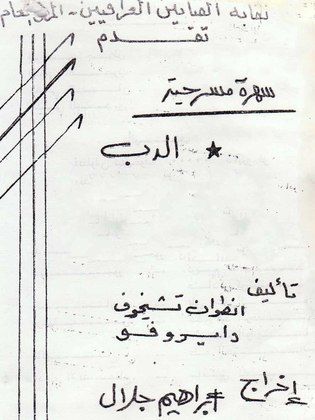 نقابة الفنانين العراقيين - المركز العام
تقدم
سهرة مسرحية
★ الدب
تأليف
انطوان تشيخوف
دايروفو
إخراج
ابراهيم جلال